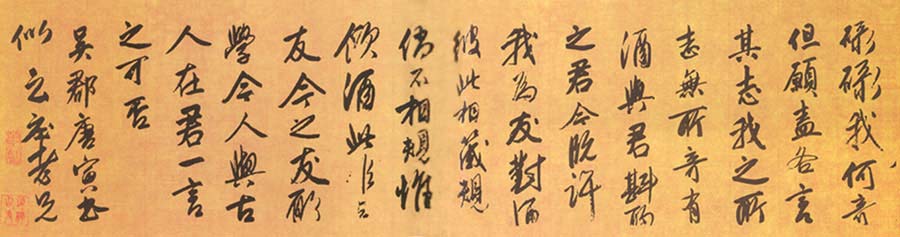 碌碌我何奇
但願盍各言
其志我之所
志無所奇有
酒與君斟酌
之君今既許
我為友對酒
彼此相箴規
倘不相規惟
飲酒此
友今之友
學今人與古
人在君一言
之可否
吳郡唐寅書
似老兄